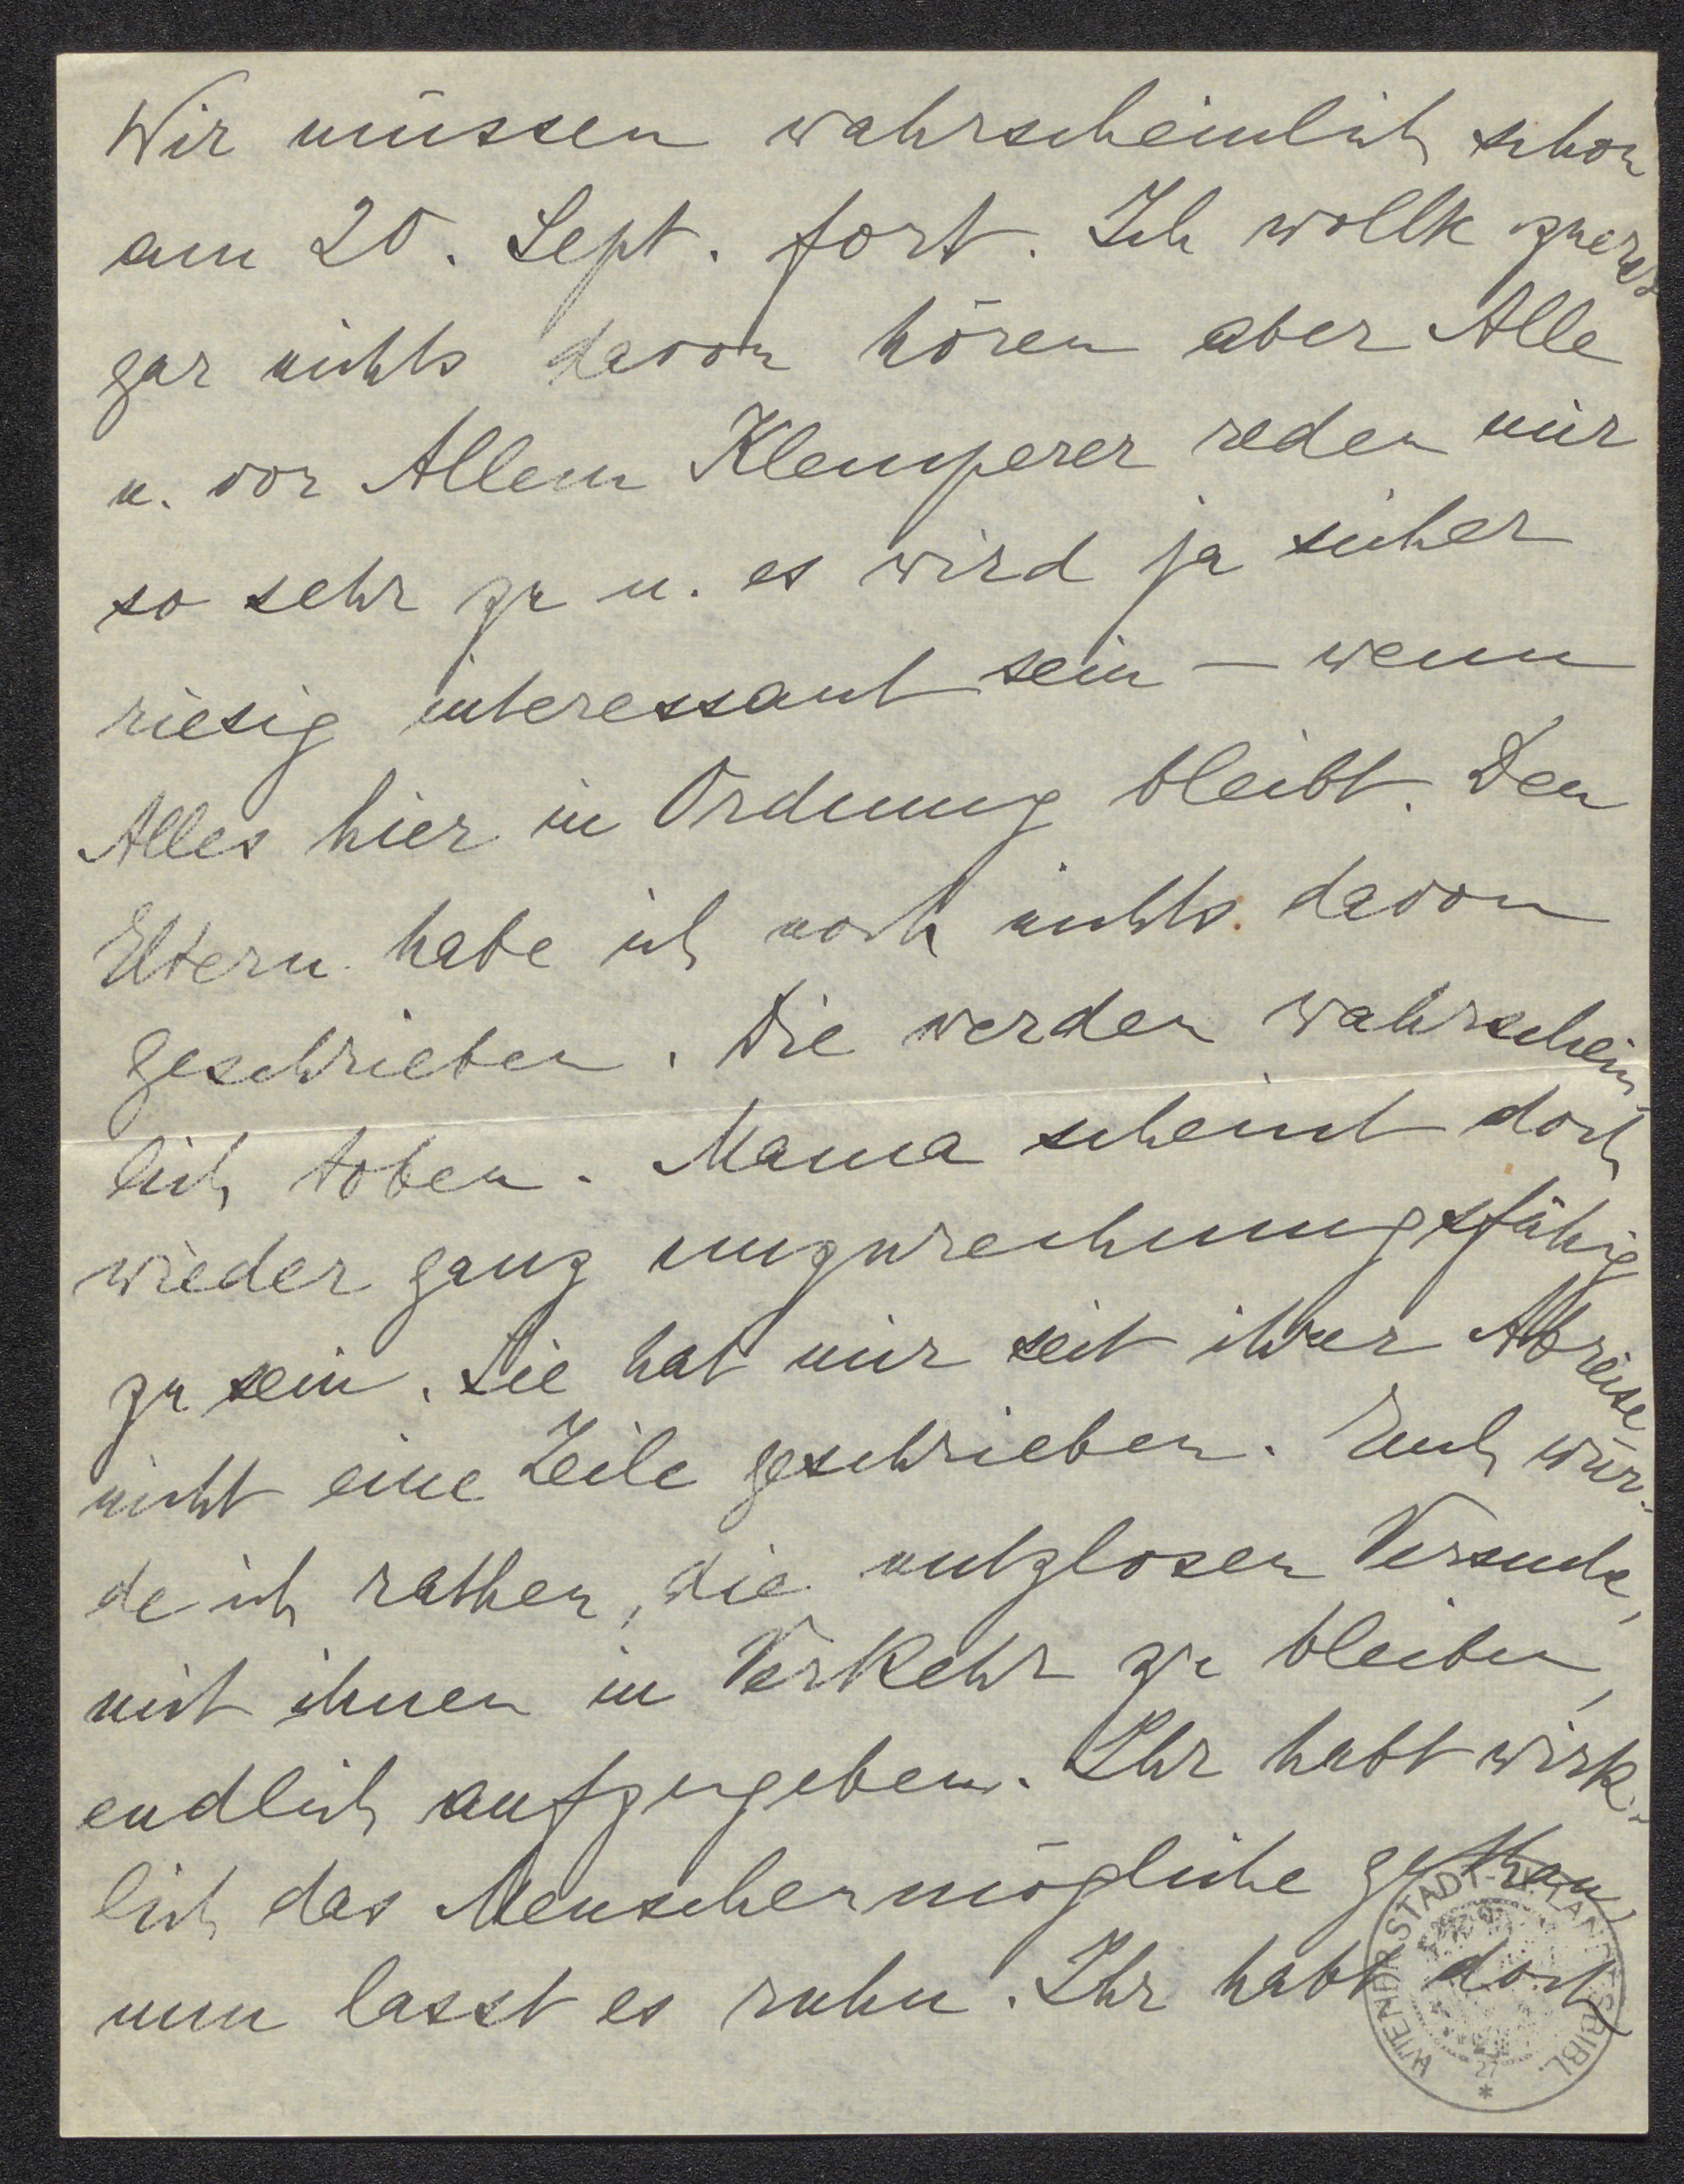 Wir müssen wahrscheinlich schon
am 20. Sept. fort. Ich wollte zuerst
gar nichts davon hören aber Alle
u. vor Allem Klemperer reden mir
so sehr zu u. es wird ja sicher
riesig interessant sein – wenn
Alles hier in Ordnung bleibt. Den
Eltern habe ich noch nichts davon
geschrieben. Die werden wahrschein-
lich toben. Mama scheint doch
wieder ganz unzurechnungsfähig
zu sein. Sie hat mir seit ihrer Abreise
nicht eine Zeile geschrieben. Euch wür-
de ich rathen, die nutzlosen Versuche,
mit ihnen in Verkehr zu bleiben,
endlich aufzugeben. Ihr habt wirk-
lich das Menschenmögliche gethan,
nun lasst es ruhn. Ihr habt doch
WIENER STADT- U. LANDESBIBL.
27
*